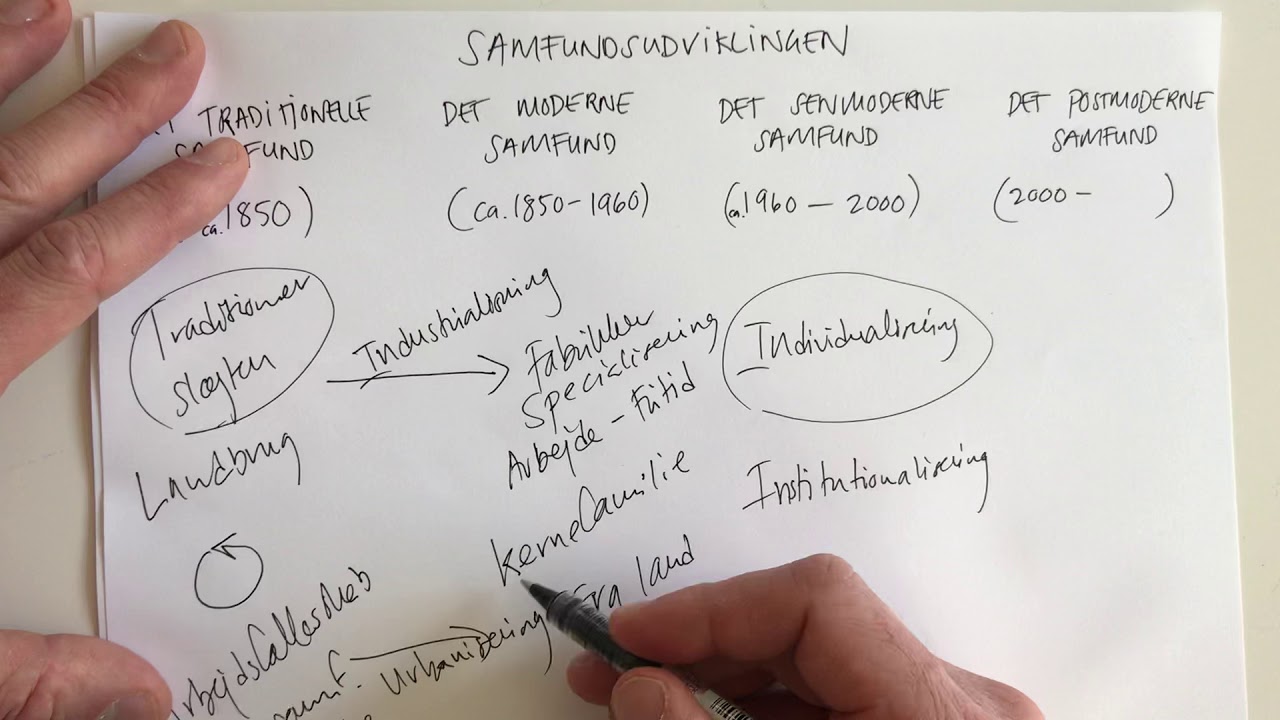 SAMFUNDSUDVIKLINGEN
TRADITIONELLE
SAMFUND
ca. 1850)
DET MODERNE
SAMFUND
(ca. 1850-1960)
DET SENMODERNE
SAMFUND
(ca. 1960 — 2000)
DET POSTMODERNE
SAMFUND
(2000 - )
Traditioner
slægten
Landbrug
Arbejdsfællesskab
Industrialisering
Fabrikker
Specialisering
Arbejde - Fritid
Kernefamilie
Urbanisering Fra land
Individualisering
Institutionalisering